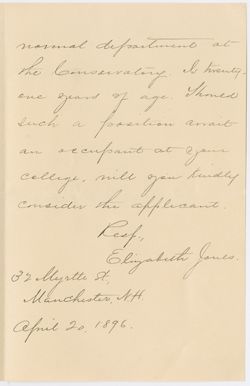 normal department at
the Conservatory. Is twenty-
one years of age. Should
such a position await
an occupant at your
college, will you kindly
consider the applicant.
Resp.,
Elizabeth Jones.
32 Myrtle St,
Manchester, N.H.
April 20, 1896.